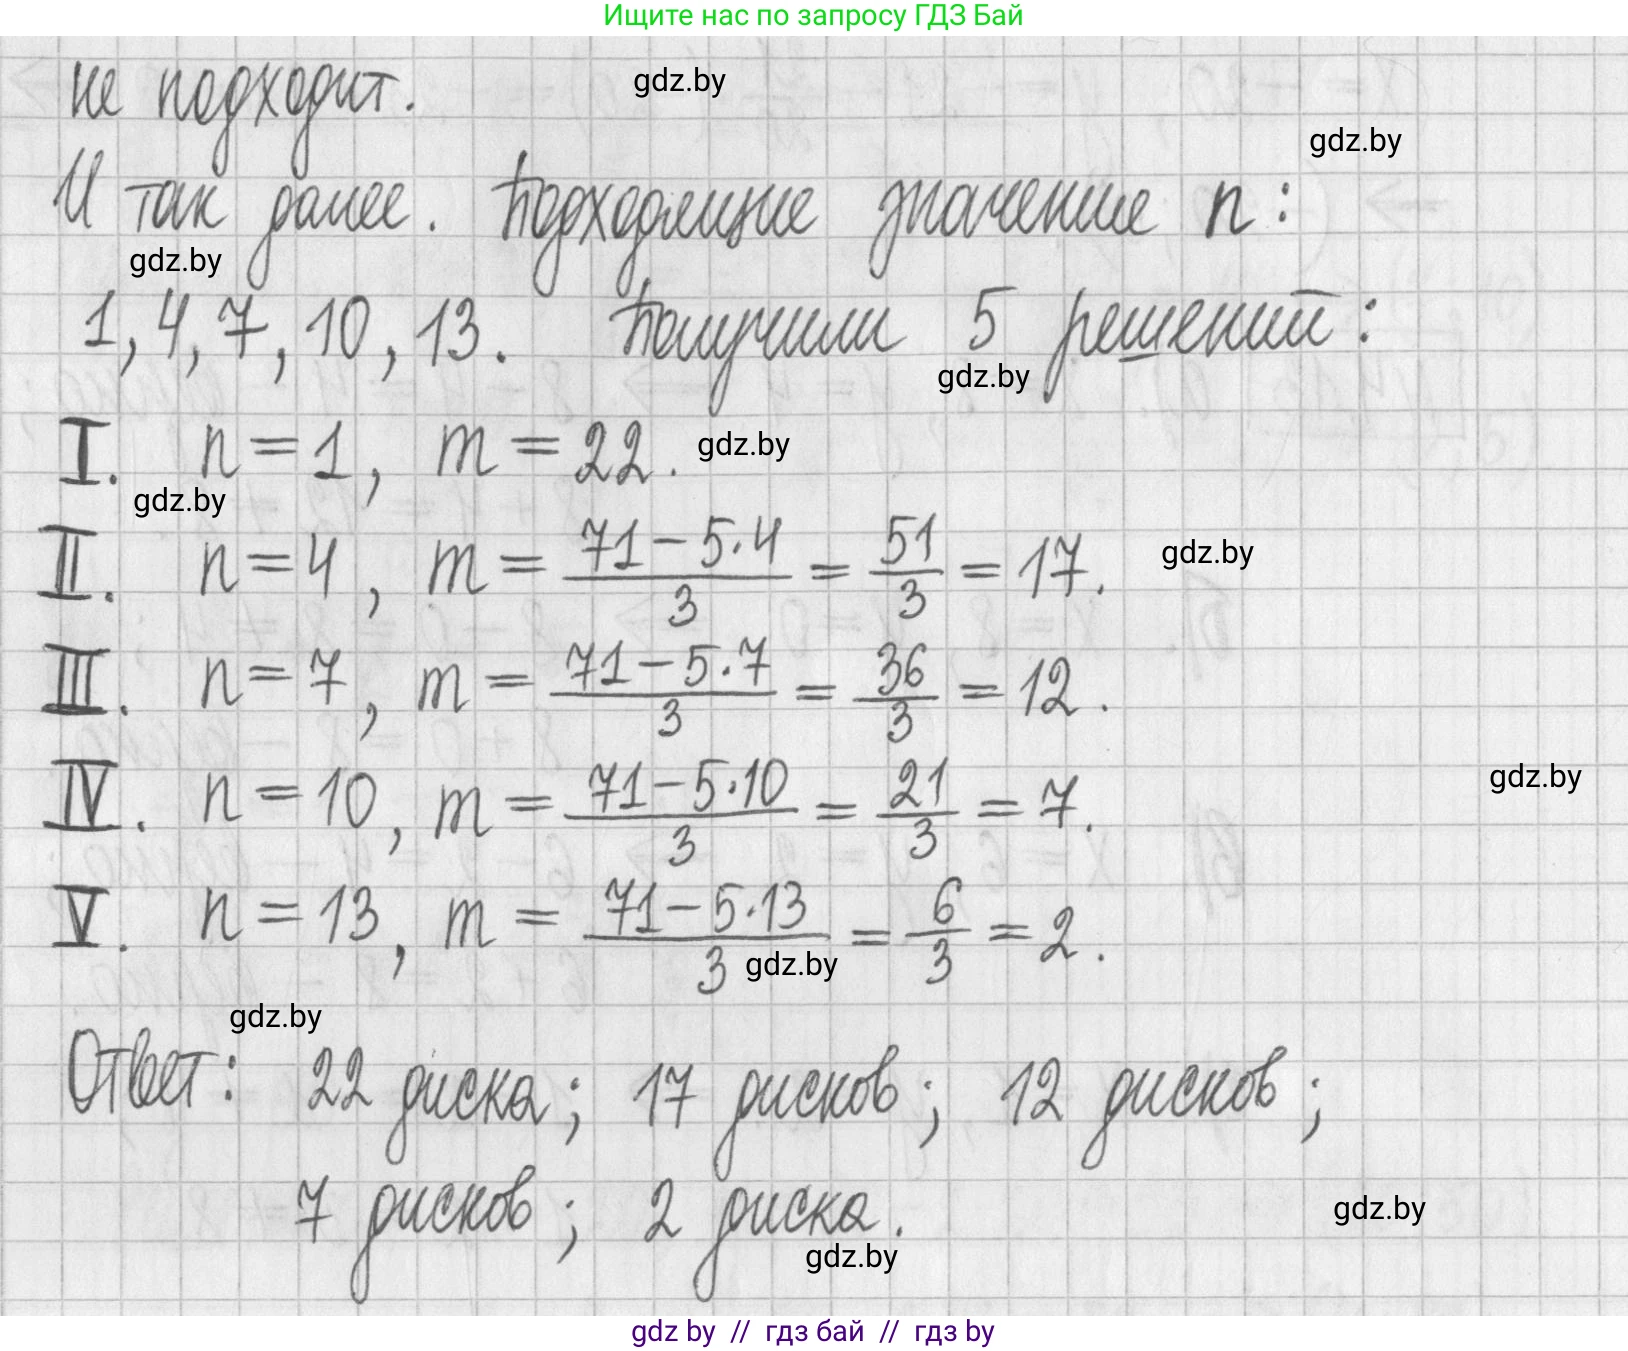 Ищите нас по запросу ГДЗ Бай
не подходит.
gdz.by
gdz.by
И так далее. Подходящие значение n:
gdz.by
1, 4, 7, 10, 13. Получили 5 решений:
gdz.by
I. n = 1, m = 22.
gdz.by
gdz.by
II. n = 4, m = 71 - 5·4 / 3 = 51 / 3 = 17.
gdz.by
III. n = 7, m = 71 - 5·7 / 3 = 36 / 3 = 12.
gdz.by
IV. n = 10, m = 71 - 5·10 / 3 = 21 / 3 = 7.
V. n = 13, m = 71 - 5·13 / 3 = 6 / 3 = 2.
gdz.by
gdz.by
Ответ: 22 диска; 17 дисков; 12 дисков;
7 дисков; 2 диска.
gdz.by
gdz.by
gdz by // гдз бай // гдз by